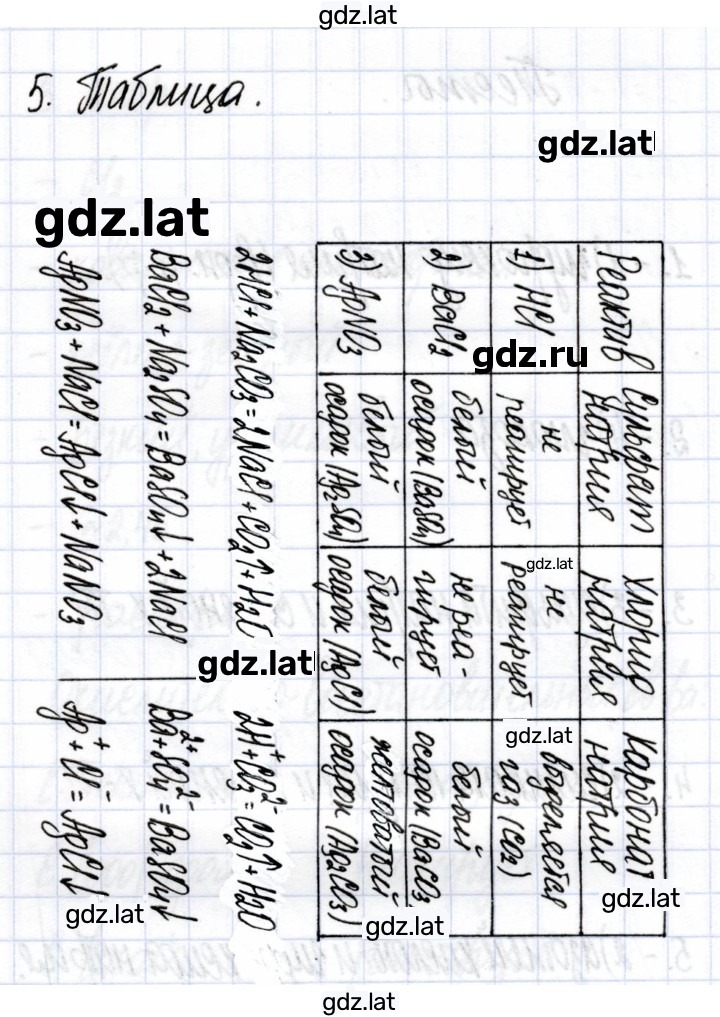 gdz.lat
5. Таблица.
gdz.lat
gdz.lat
Реактив
Сульфат
натрия
Хлорид
натрия
Карбонат
натрия
1) HCl
не
реагирует
не
реагирует
выделяется
газ (CO₂)
2) BaCl₂
белый
осадок (BaSO₄)
не реа-
гирует
белый
осадок (BaCO₃
3) AgNO₃
белый
осадок (Ag₂SO₄)
белый
осадок (AgCl)
желтоватый
осадок (Ag₂CO₃)
gdz.ru
gdz.lat
gdz.lat
gdz.lat
2HCl + Na₂CO₃ = 2NaCl + CO₂↑ + H₂O
2H⁺ + CO₃²⁻ = CO₂↑ + H₂O
BaCl₂ + Na₂SO₄ = BaSO₄↓ + 2NaCl
Ba²⁺ + SO₄²⁻ = BaSO₄↓
AgNO₃ + NaCl = AgCl↓ + NaNO₃
Ag⁺ + Cl⁻ = AgCl↓
gdz.lat
gdz.lat
gdz.lat
gdz.lat